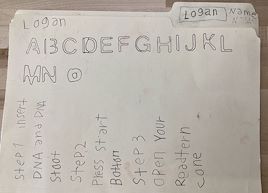 Logan
Logan Name
ABCDEFGHIJKL
MNO
Step 1 Insert
DNA and DVA
Shoot
Step 2
Press Start
Botton
Step 3
Open Your
Come